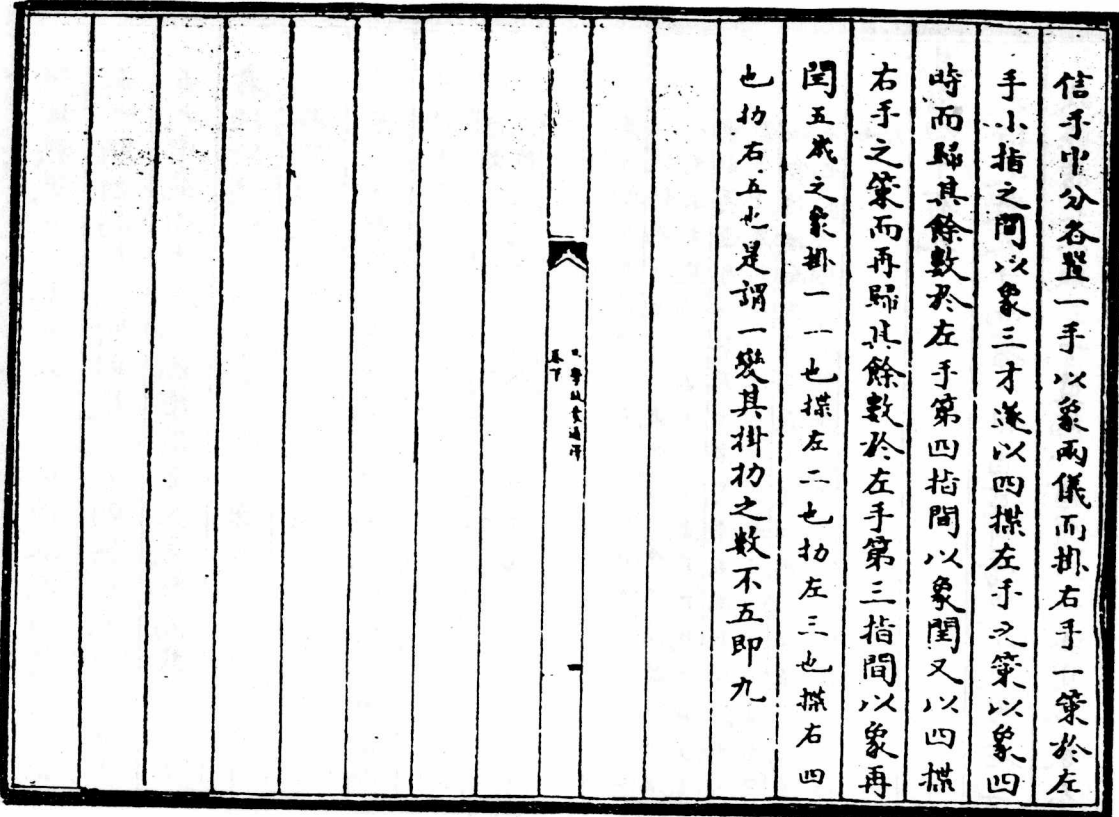 信手中分各置一手以象兩儀而掛右手一策於左
手小指之間以象三才遂以四揲左手之策以象四
時而歸其餘數於左手第四指間以象閏又以四揲
右手之策而再歸其餘數於左手第三指間以象再
閏五歲之象掛一一也揲左二也扐左三也揲右四
也扐右五也是謂一變其掛扐之數不五即九
啟蒙通釋
卷下
一